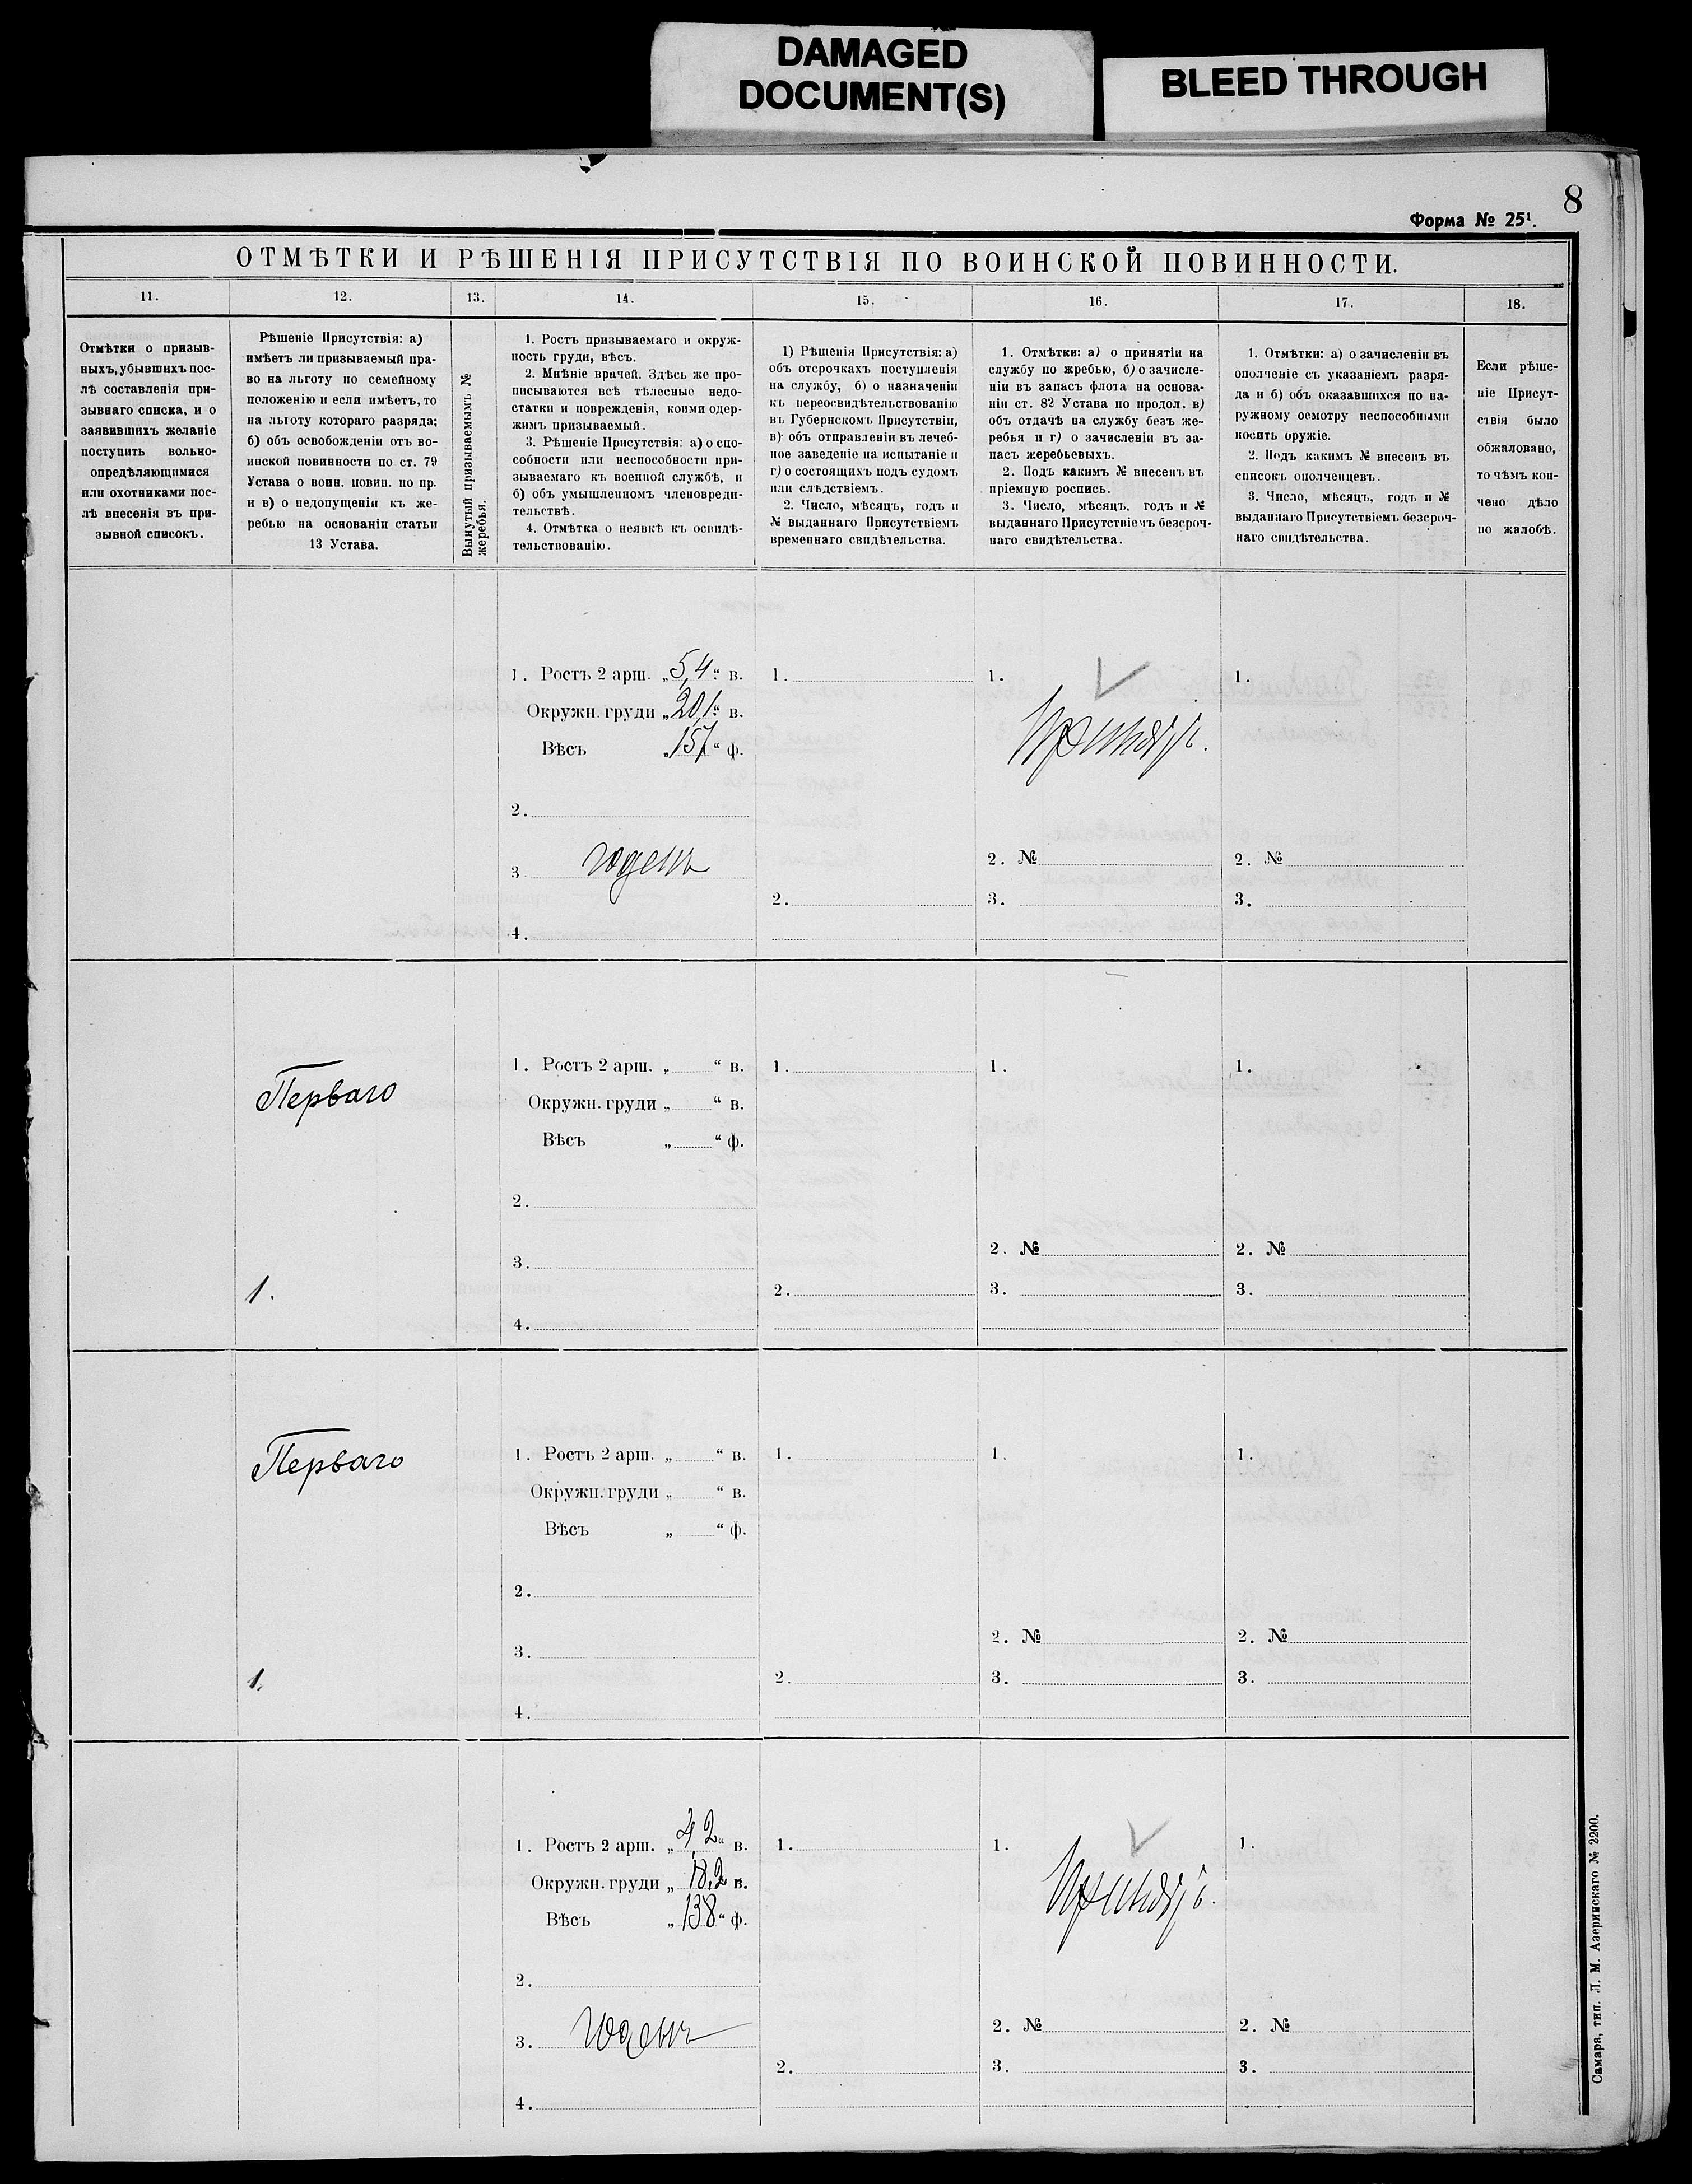 DAMAGED
DOCUMENT(S)
BLEED THROUGH
8
Форма № 25¹.
ОТМѢТКИ И РѢШЕНІЯ ПРИСУТСТВІЯ ПО ВОИНСКОЙ ПОВИННОСТИ.
11.
12.
13.
14.
15.
16.
17.
18.
Отмѣтки о призыв-
ныхъ, убывшихъ пос-
лѣ составленія при-
зывнаго списка, и о
заявившихъ желаніе
поступить вольно-
опредѣляющимися
или охотниками пос-
лѣ внесенія въ при-
зывной списокъ.
Рѣшеніе Присутствія: а)
имѣетъ ли призываемый пра-
во на льготу по семейному
положенію и если имѣетъ, то
на льготу котораго разряда;
б) объ освобожденіи отъ во-
инской повинности по ст. 79
Устава о воин. повин. по пр.
и в) о недопущеніи къ же-
ребью на основаніи статьи
13 Устава.
Вынутый призываемымъ №
жеребья.
1. Ростъ призываемаго и окруж-
ность груди, вѣсъ.
2. Мнѣніе врачей. Здѣсь же про-
писываются всѣ тѣлесные недо-
статки и поврежденія, коими одер-
жимъ призываемый.
3. Рѣшеніе Присутствія: а) о спо-
собности или неспособности при-
зываемаго къ военной службѣ, и
б) объ умышленномъ членовреди-
тельствѣ.
4. Отмѣтка о неявкѣ къ освидѣ-
тельствованію.
1) Рѣшенія Присутствія: а)
объ отсрочкахъ поступленія
на службу, б) о назначеніи
къ переосвидѣтельствованію
въ Губернскомъ Присутствіи,
в) объ отправленіи въ лечеб-
ное заведеніе на испытаніе и
г) о состоящихъ подъ судомъ
или слѣдствіемъ.
2. Число, мѣсяцъ, годъ и
№ выданнаго Присутствіемъ
временнаго свидѣтельства.
1. Отмѣтки: а) о принятіи на
службу по жребью, б) о зачисле-
ніи въ запасъ флота на основа-
ніи ст. 82 Устава по продол. в)
объ отдачѣ на службу безъ же-
ребья и г) о зачисленіи въ за-
пасъ жеребьевыхъ.
2. Подъ какимъ № внесенъ въ
пріемную роспись.
3. Число, мѣсяцъ, годъ и №
выданнаго Присутствіемъ безсроч-
наго свидѣтельства.
1. Отмѣтки: а) о зачисленіи въ
ополченіе съ указаніемъ разря-
да и б) объ оказавшихся по на-
ружному осмотру неспособными
носить оружіе.
2. Подъ какимъ № внесенъ въ
списокъ ополченцевъ.
3. Число, мѣсяцъ, годъ и №
выданнаго Присутствіемъ безсроч-
наго свидѣтельства.
Если рѣше-
ніе Присут-
ствія было
обжаловано,
то чѣмъ кон-
чено дѣло
по жалобѣ.
1. Ростъ 2 арш. „5,4“ в.
Окружн. груди „20,1“ в.
Вѣсъ „157“ ф.
2.
3 годенъ
4.
1.
2.
1.
Принятъ.
2. №
3.
1.
2. №
3.
Перваго
1.
1. Ростъ 2 арш. „ “ в.
Окружн. груди „ “ в.
Вѣсъ „ “ ф.
2.
3.
4.
1.
2.
1.
2. №
3.
1.
2. №
3.
Перваго
1.
1. Ростъ 2 арш. „ “ в.
Окружн. груди „ “ в.
Вѣсъ „ “ ф.
2.
3.
4.
1.
2.
1.
2. №
3.
1.
2. №
3.
1. Ростъ 2 арш. „4,2“ в.
Окружн. груди „18,2 в.
Вѣсъ „138“ ф.
2.
3. годенъ
4.
1.
2.
1.
Принятъ.
2. №
3.
1.
2. №
3.
Самара, тип. Л. М. Азеринскаго № 2200.